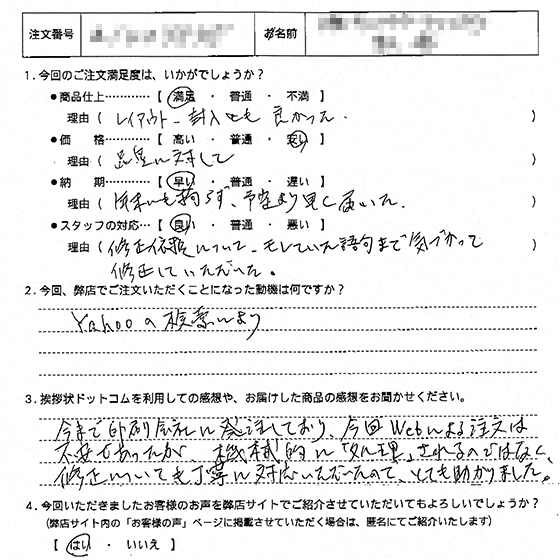 注文番号 お名前
1. 今回のご注文満足度は、いかがでしょうか？
●商品仕上…………【 満足 ・ 普通 ・ 不満 】
理由（ レイアウト、封入とも 良かった. ）
●価　　格…………【 高い ・ 普通 ・ 安い 】
理由（ 品質に対して ）
●納　　期…………【 早い ・ 普通 ・ 遅い 】
理由（ 年末にも拘らず、予定より早く届いた. ）
●スタッフの対応…【 良い ・ 普通 ・ 悪い 】
理由（ 修正依頼について、モレていた語句まで気づかって ）
修正していただいた。
2. 今回、弊店でご注文いただくことになった動機は何ですか？
Yahooの検索により
3. 挨拶状ドットコムを利用しての感想や、お届けした商品の感想をお聞かせください。
今まで印刷会社に発注しており、今回Webによる注文は
不安であったが、機械的に「処理」されるのではなく、
修正についても丁寧に対応いただいたので、とても助かりました。
4. 今回いただきましたお客様のお声を弊店サイトでご紹介させていただいてもよろしいでしょうか？
（弊店サイト内の「お客様の声」ページに掲載させていただく場合は、匿名にてご紹介いたします）
【 はい ・ いいえ 】